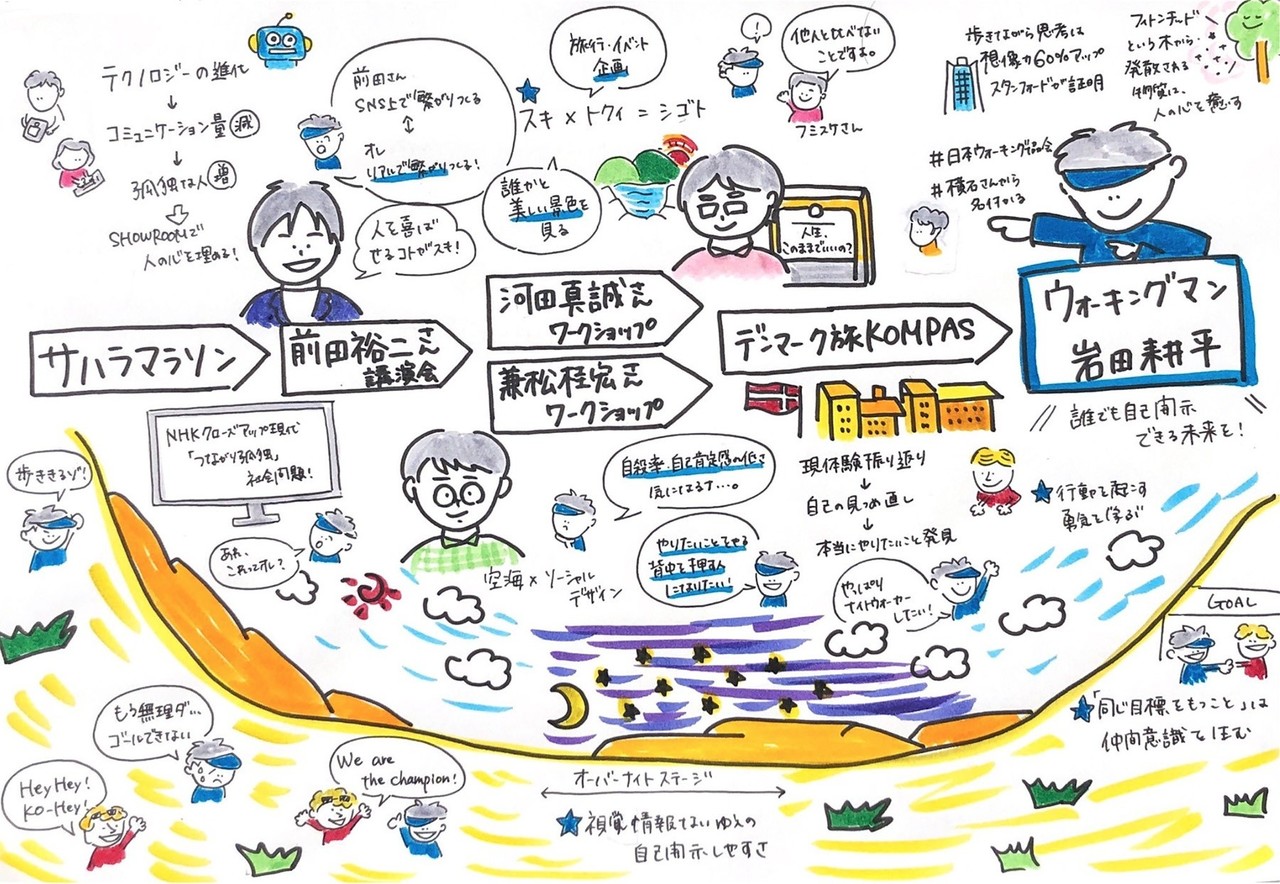 テクノロジーの進化
↓
コミュニケーション量 減
↓
孤独な人 増
SHOWROOMで
人の心を埋める!
前田さん
SNS上で繋がりつくる
↕
オレ
リアルで繋がりつくる!
人を喜ば
せるコトがスキ!
旅行・イベント
企画
スキ × トクイ = シゴト
誰かと
美しい景色を
見る
!
他人と比べない
ことですよ。
フミスケさん
人生、
このままでいいの?
歩きながら思考は
想像力60%アップ
スタンフォードが証明
フィトンチッド
という木から
発散される
物質は、
人の心を癒す
#日本ウォーキング協会
#横石さんから
名付かる
サハラマラソン
前田裕二さん
講演会
河田真誠さん
ワークショップ
兼松桂宏さん
ワークショップ
デンマーク旅KOMPAS
ウォーキングマン
岩田耕平
誰でも自己開示
できる未来を!
NHKクローズアップ現代
「つながり孤独」
社会問題!
歩ききるゾ!
あれ、
これってオレ?
空海×ソーシャル
デザイン
自殺率・自己肯定感の低さ
気になるナ…。
やりたいことをやる
背中を押す人
になりたい!
現体験振り返り
↓
自己の見つめ直し
↓
本当にやりたいこと発見
やっぱり
ナイトウォーカー
したい!
行動を起こす
勇気を学ぶ
GOAL
「同じ目標をもつこと」は
仲間意識をはぐくむ
もう無理ダ…
ゴールできない
Hey Hey!
Ko-Hey!
We are
the champion!
オーバーナイトステージ
視覚情報でないゆえの
自己開示しやすさ